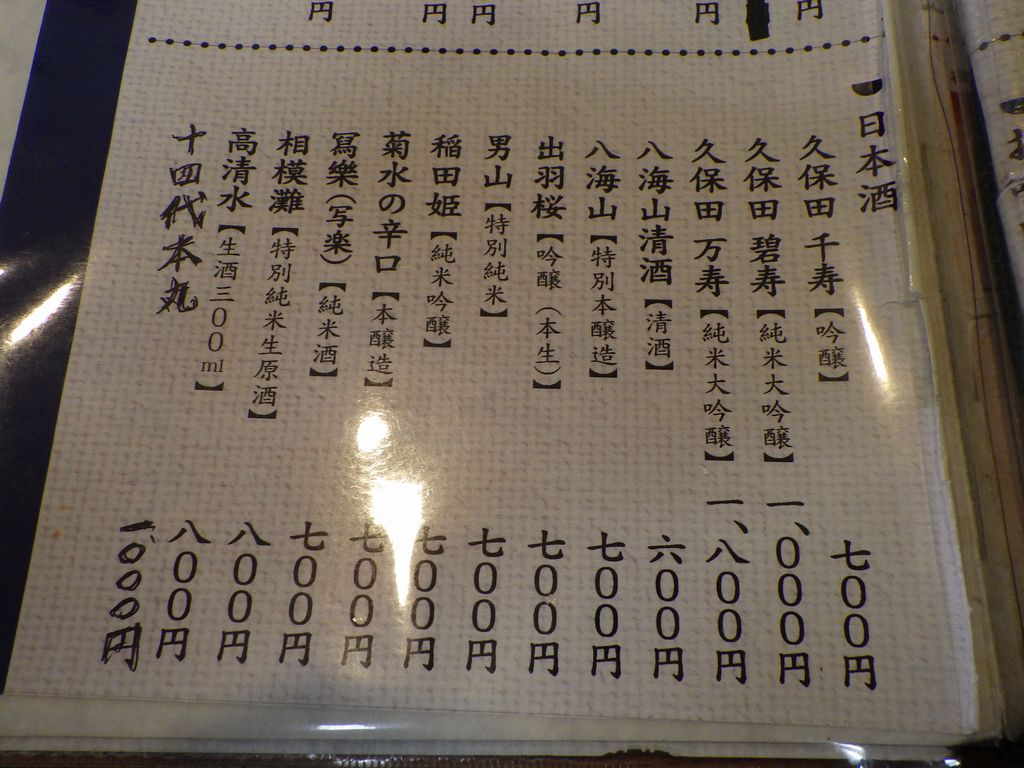 円
円
円
円
円
円
日本酒
久保田 千寿【吟醸】 七〇〇円
久保田 碧寿【純米大吟醸】 一、〇〇〇円
久保田 万寿【純米大吟醸】 一、八〇〇円
八海山清酒【清酒】 六〇〇円
八海山【特別本醸造】 七〇〇円
出羽桜【吟醸(本生)】 七〇〇円
男山【特別純米】 七〇〇円
稲田姫【純米吟醸】 七〇〇円
菊水の辛口【本醸造】 七〇〇円
冩樂(写楽)【純米酒】 七〇〇円
相模灘【特別純米生原酒】 八〇〇円
高清水【生酒三〇〇ml】 八〇〇円
十四代本丸 一、〇〇〇円